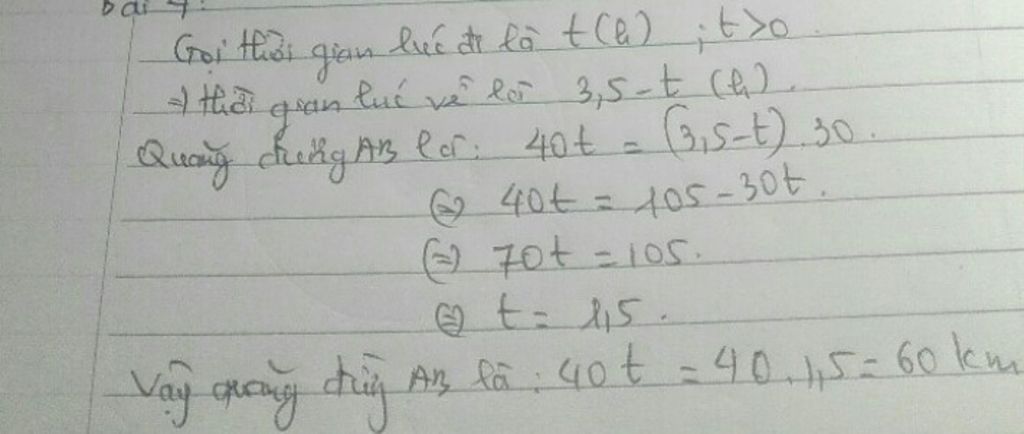 Bài 4:
Gọi thời gian lúc đi là t(h) ; t>0.
=> thời gian lúc về là 3,5-t (h).
Quãng đường AB là: 40t = (3,5-t).30.
(=) 40t = 105-30t.
(=) 70t = 105.
(=) t = 1,5.
Vậy quãng đường AB là: 40t = 40.1,5 = 60 km